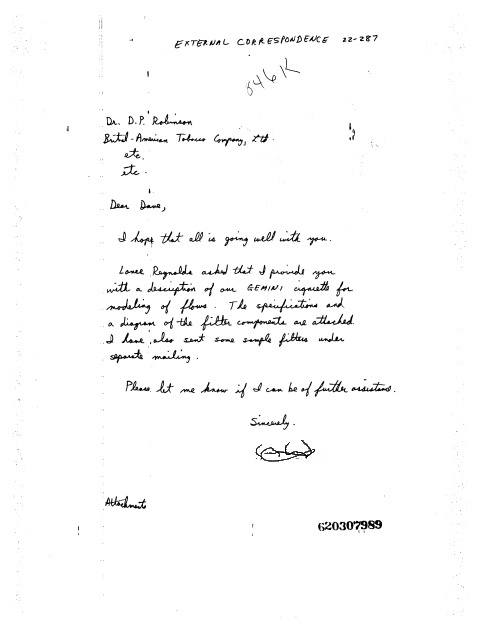 EXTERNAL CORRESPONDENCE 22-287
846K
Dr. D.P. Robinson
British-American Tobacco Company, Ltd.
etc.
etc.
Dear Dave,
I hope that all is going well with you.
Lance Reynolds asked that I provide you
with a description of our GEMINI cigarette for
modeling of flows. The specifications and
a diagram of the filter components are attached.
I have also sent some sample filters under
separate mailing.
Please let me know if I can be of further assistance.
Sincerely.
Attachments
620307989